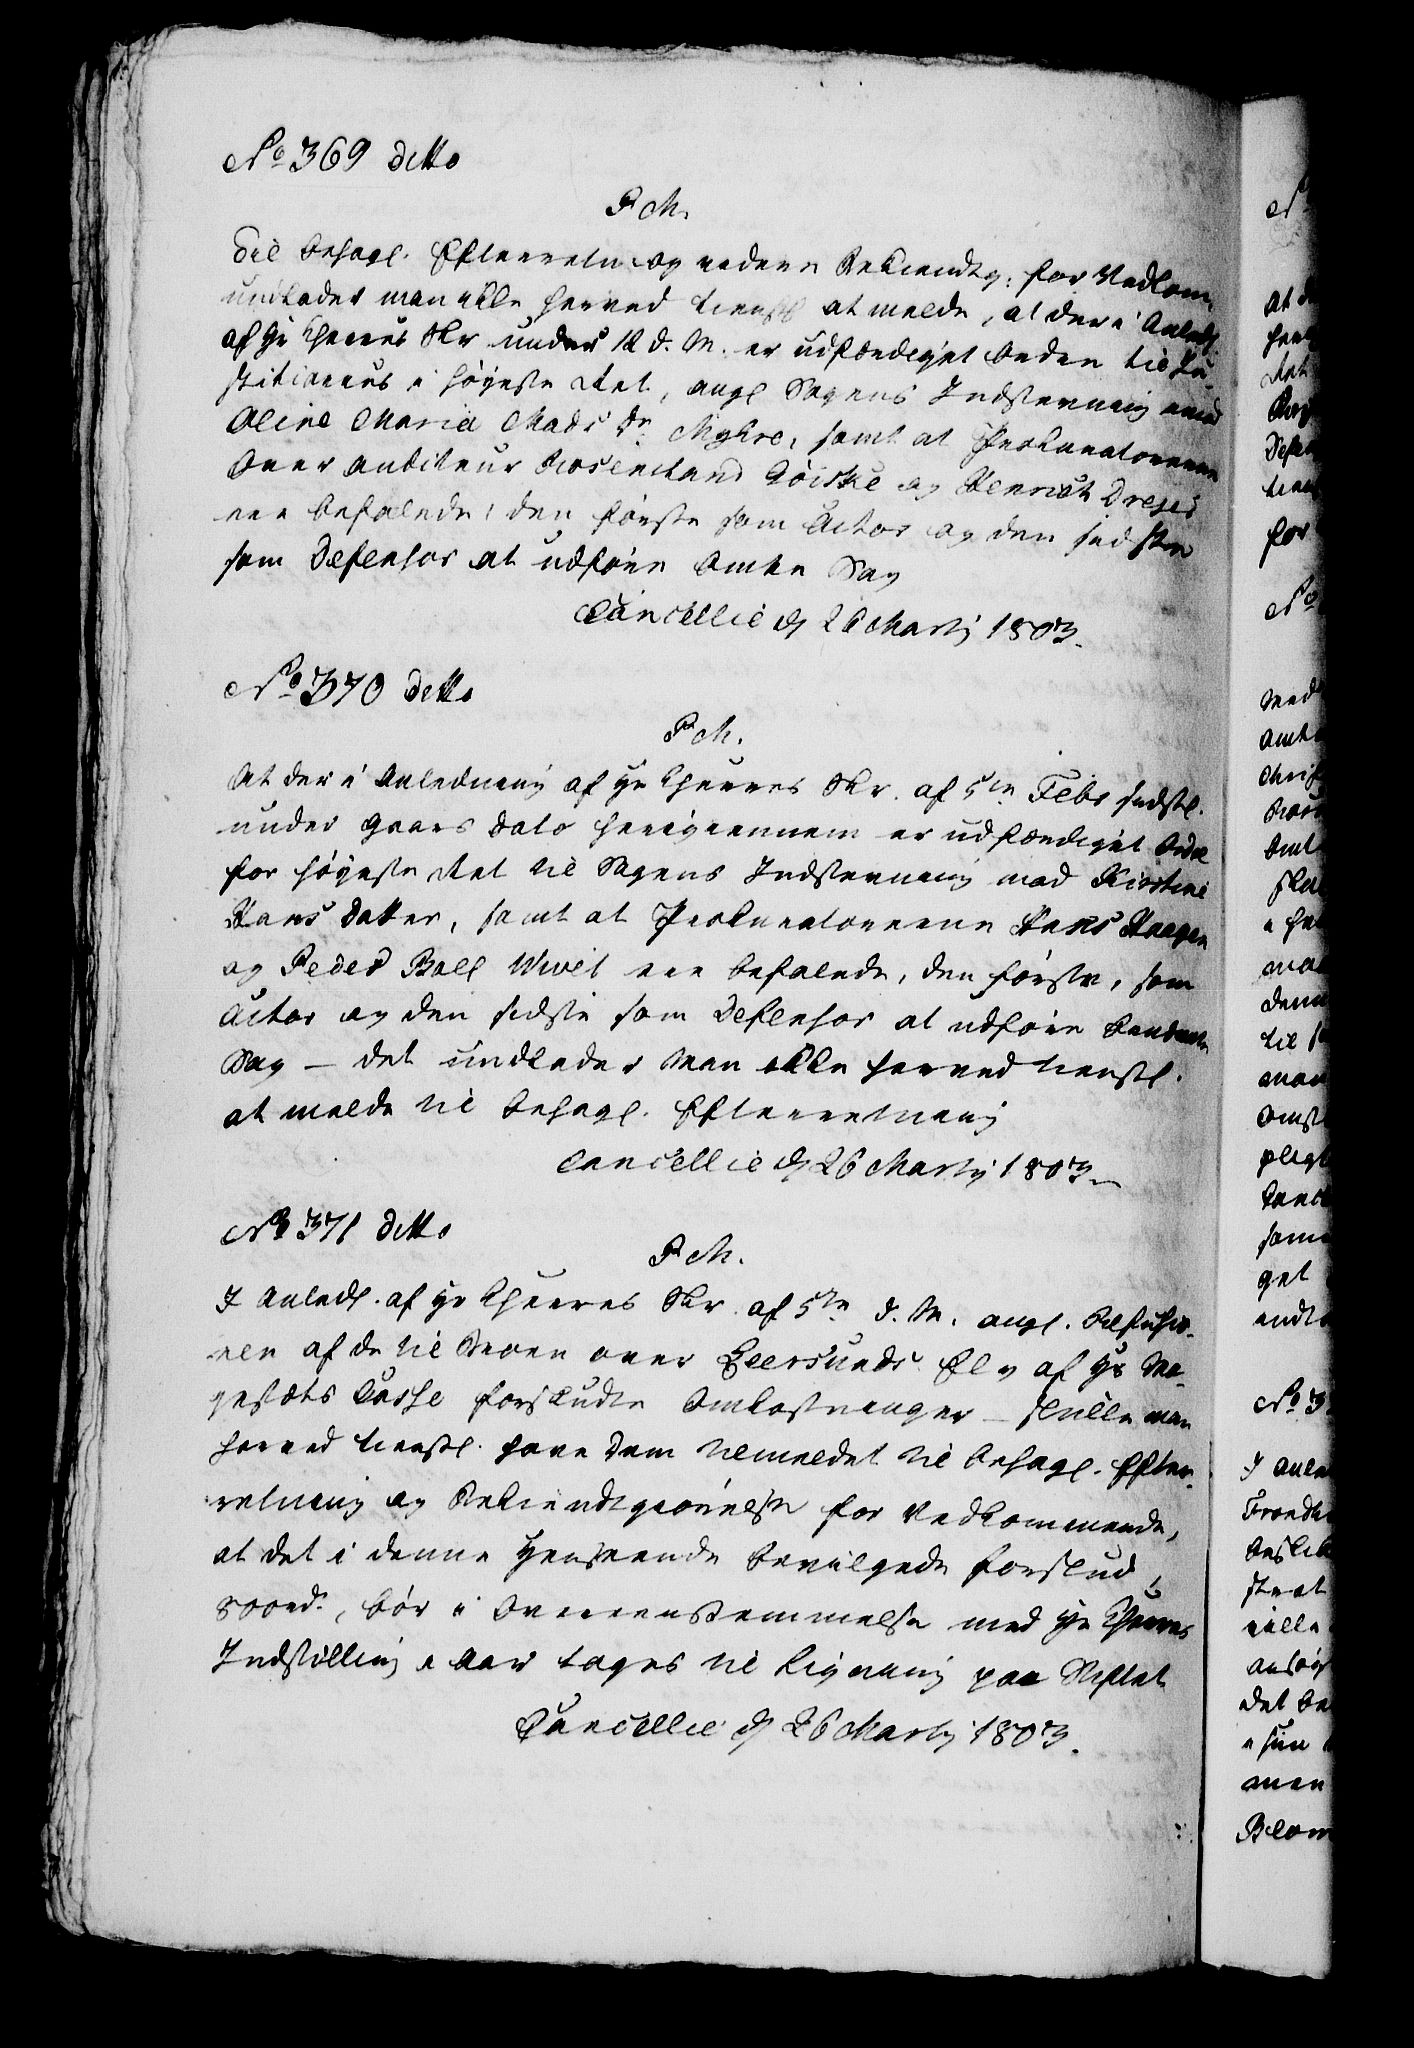 No 369 ditto
P M.
Til behagl. Efterretn: og videre Bekiendtg: for Vedkom:
undlader man ikke herved tienstl at melde, at der i Anledn:
af Hr Cherres Skr under 12 d. M. er udfærdiget Orden til Ju-
stitiarius i høyeste Ret, angl Sagens Indstevning mod
Oline Maria Mads Dr Myhre, samt at Prokuratorerne
Over Auditeur Rosenstand Goiske og Henrich Dreyer
ere befalede, den første som Actor og den sidste
som Defensor at udføre bemte Sag
Cancellie d 26 Martij 1803.
No 370 ditto
P M.
At der i Anledning af Hr Cherres Skr. af 5te Febr sidstl.
under gaars Dato herigiennem er udfærdiget Ordre
for høyeste Ret til Sagens Indstevning mod Kirstine
Hans Datter, samt at Prokuratorerne Hans Haagen
og Peder Boll Wivel ere befalede, den første, som
Actor og den sidste som Defensor at udføre benævnte
Sag – det undlader Man ikke herved tienstl.
at melde til behagl. Efterretning
Cancellie d 26 Martij 1803
No 371 ditto
P M.
I Anledn. af Hr Cherres Skr. af 5te d. M. angl. Refusio-
nen af de til Broen over Leersunds Elv af Hs Ma-
gestæts Casse forskudte Omkostninger – skulle man
herved tienstl. have Dem tilmeldet til behagl. Efter-
retning og Bekiendtgiørelse for Vedkommende,
at det i denne Henseende bevilgede Forskud,
800rd., bør i Overeensstemmelse med Hr Cherres
Indstilling i Aar tages til Ligning paa Stiftet
Cancellie d 26 Martij 1803.